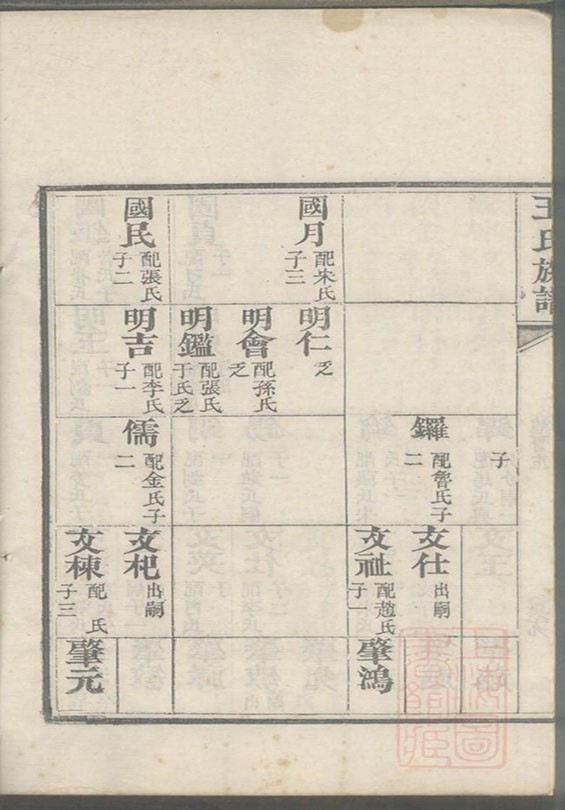 王氏族譜
國月 配宋氏子三
國民 配張氏子二
明仁 乏
明會 配孫氏乏
明鑑 配張氏于氏乏
明吉 配李氏子一
子
鑼 配魯氏子二
儒 配金氏子二
文仕 出嗣
文祉 配趙氏子一
文杞 出嗣
文棟 配 氏子三
肇鴻
肇元